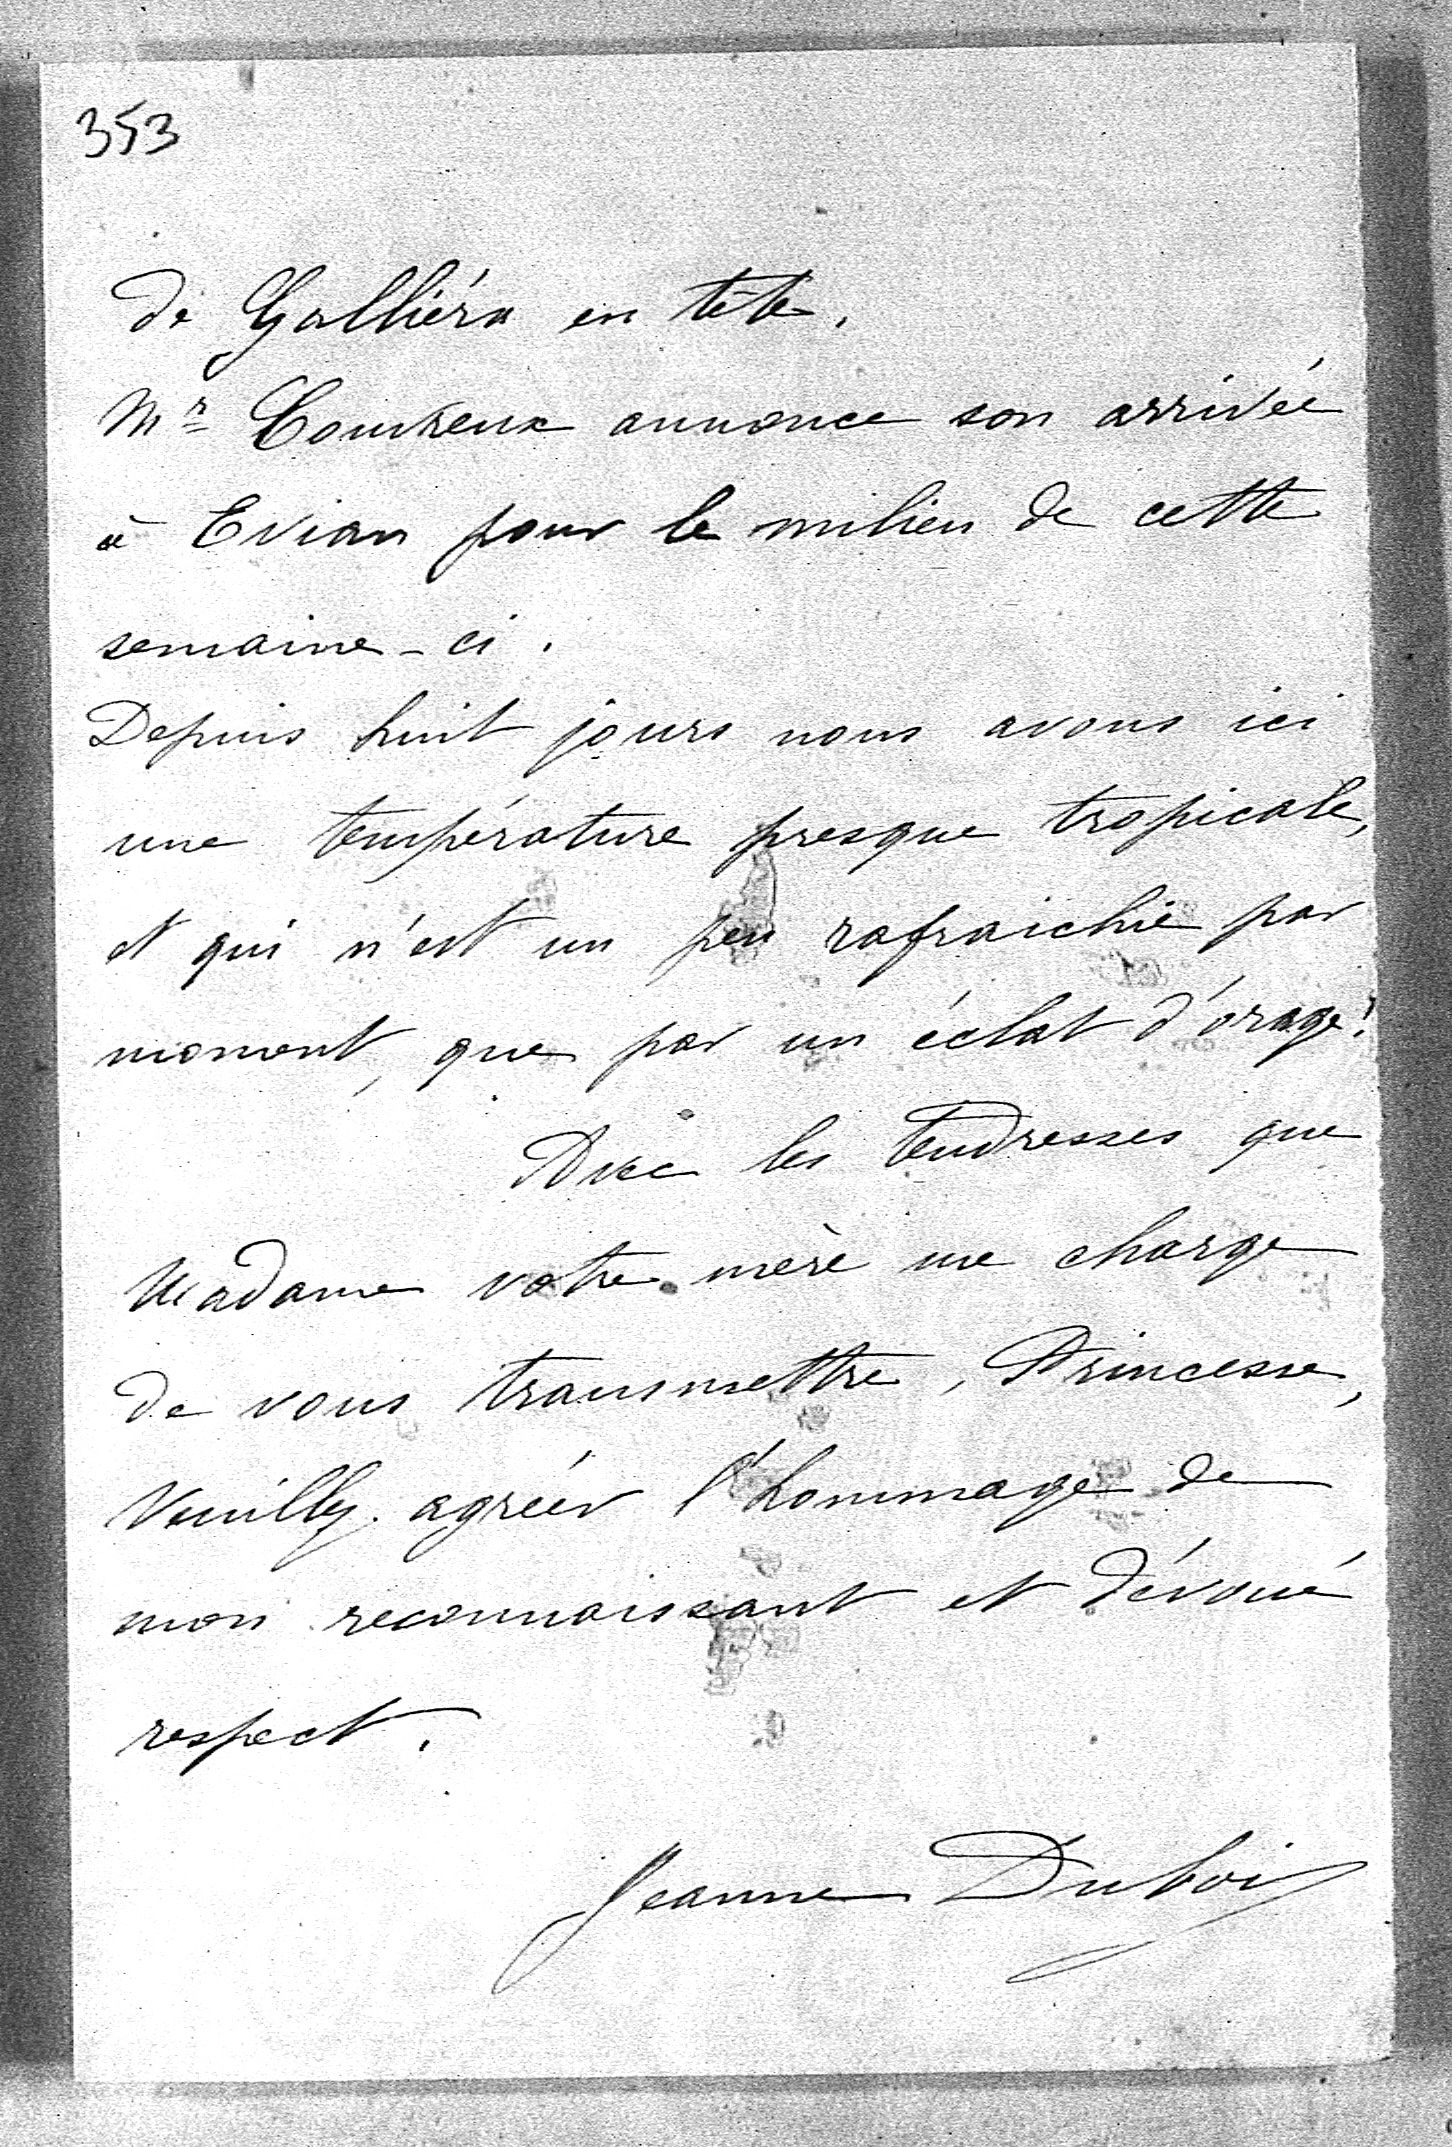 353
de Galliéra en tête.
Mr Couvreux annonce son arrivée
à Evian pour le milieu de cette
semaine-ci.
Depuis huit jours nous avons ici
une température presque tropicale,
et qui n'est un peu rafraichie par
moment, que par un éclat d'orage!
Avec les tendresses que
Madame votre mère me charge
de vous transmettre, Princesse,
Veuillez agréér l'hommage de
mon reconnaissant et dévoué
respect.
Jeanne Dubois